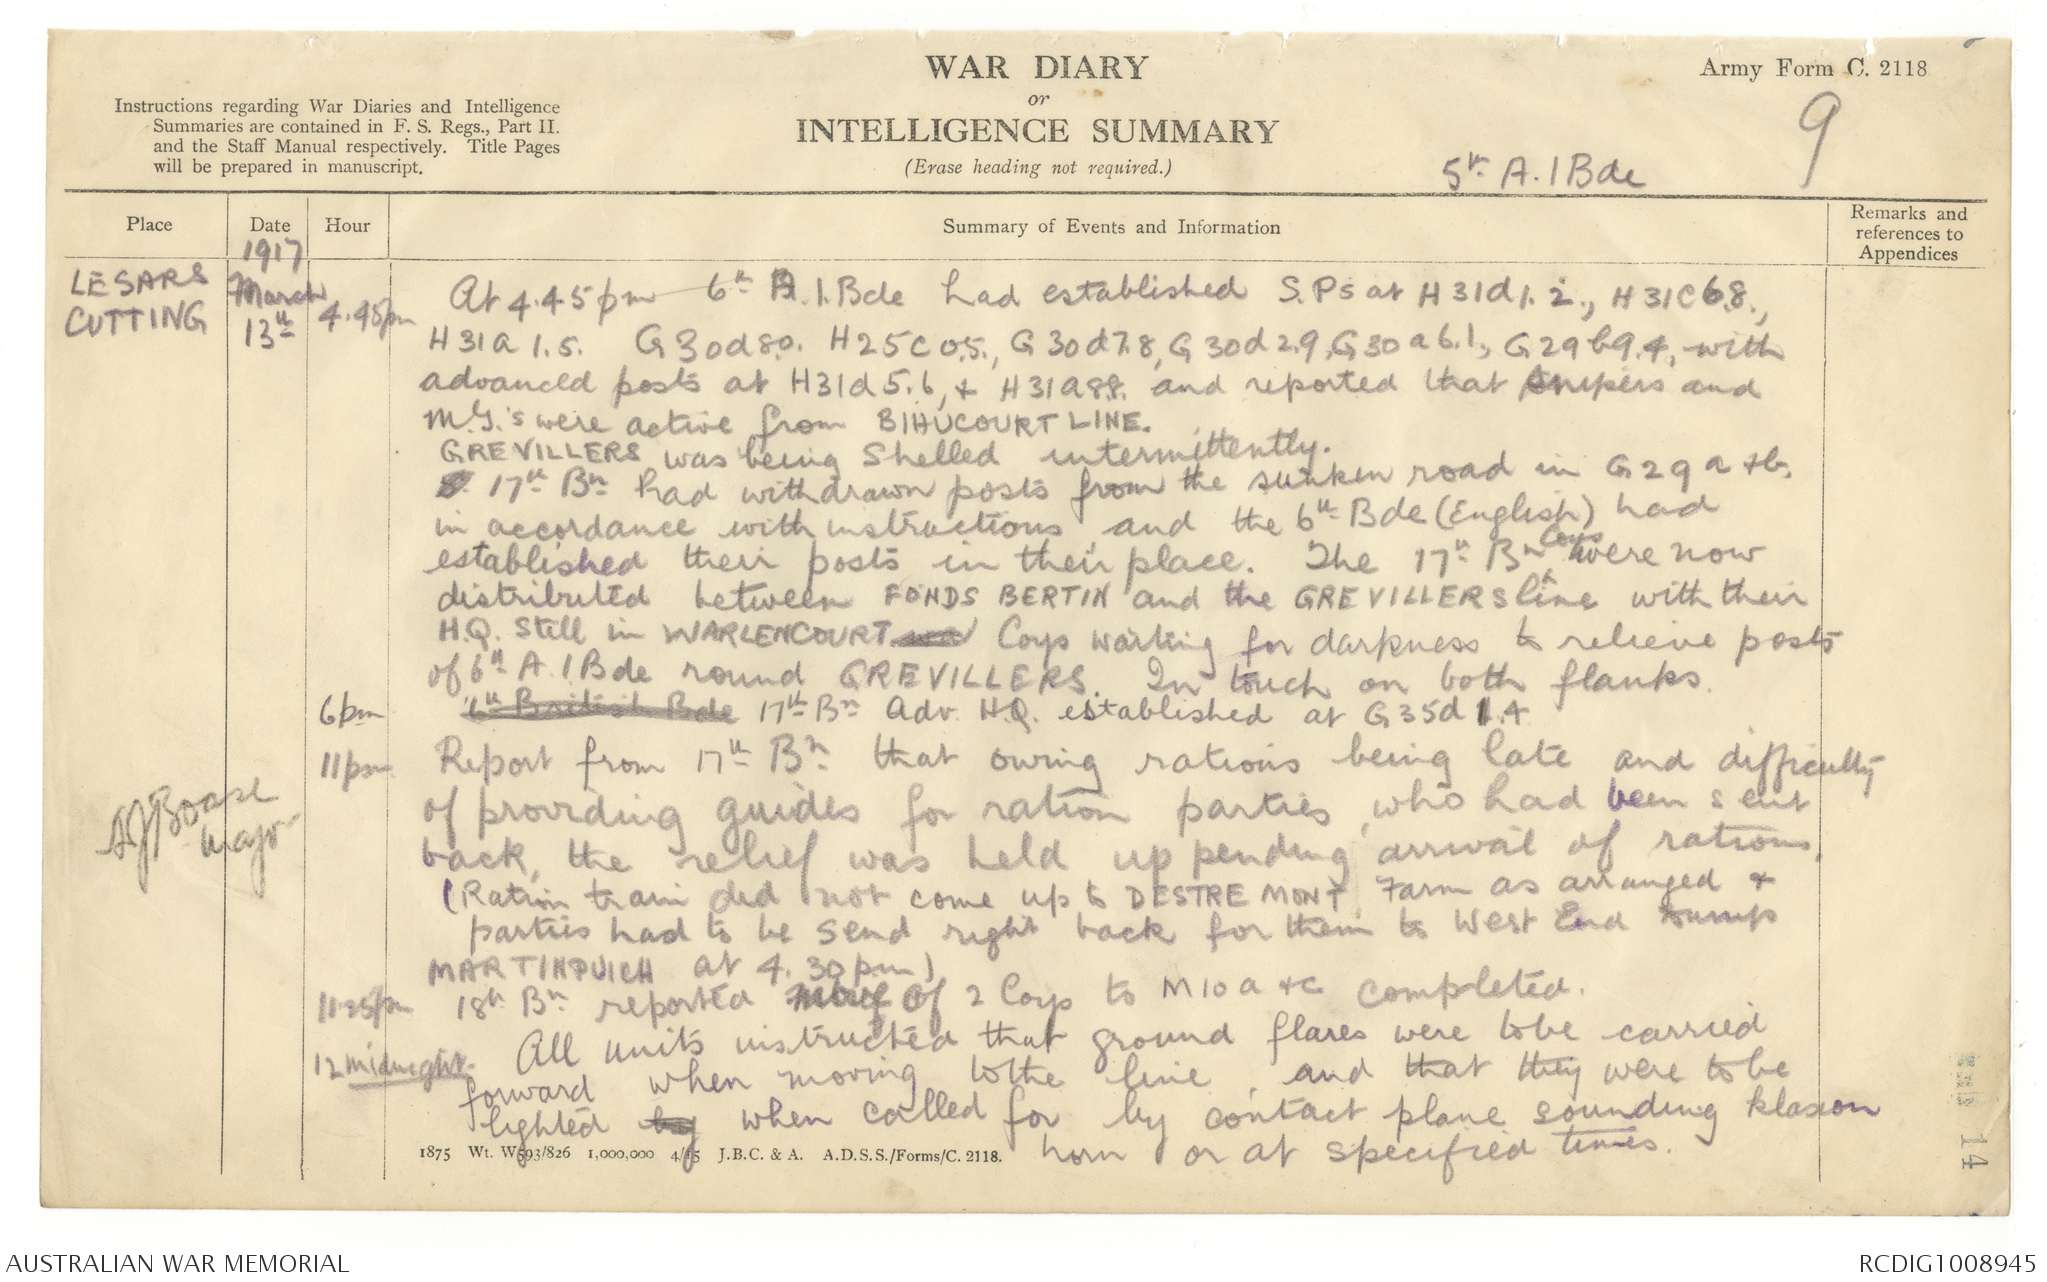 WAR DIARY
or
INTELLIGENCE SUMMARY
(Erase heading not required.)
Army Form C. 2118
9
Instructions regarding War Diaries and Intelligence
Summaries are contained in F. S. Regs., Part II.
and the Staff Manual respectively. Title Pages
will be prepared in manuscript.
5th A.I Bde
Place
Date
Hour
Summary of Events and Information
Remarks and
references to
Appendices
1917
LE SARS
CUTTING
March
13th
4.45pm
At 4.45pm 6th A.I.Bde had established S.Ps at H31d1.2., H31C6.8.,
H31a1.5. G30d8.0. H25C0.5., G30d7.8, G30d2.9, G30a6.1, G29b9.4, with
advanced posts at H31d5.6, & H31a8.8. and reported that Snipers and
M.G.'s were active from BIHUCOURT LINE.
GREVILLERS was being Shelled intermittently.
17th Bn had withdrawn posts from the sunken road in G29a & b.
in accordance with instructions and the 6th Bde (English) had
established their posts in their place. The 17th Bn Coys were now
distributed between FONDS BERTIN and the GREVILLERS line with their
H.Q. Still in WARLENCOURT Coys waiting for darkness to relieve posts
of 6th A.I Bde round GREVILLERS. In touch on both flanks.
6pm
6th British Bde 17th Bn Adv. H.Q. established at G35d1.4
11pm
Report from 17th Bn that owing rations being late and difficulty
of providing guides for ration parties, who had been sent
back, the relief was held up pending arrival of rations.
(Ration train did not come up to DESTREMONT Farm as arranged &
parties had to be send right back for them to West End Dumps
MARTINPUICH at 4.30pm)
AJ Boase
Major
11.25pm
18th Bn reported move of 2 Coys to M10a & c completed.
12 midnight
All units instructed that ground flares were to be carried
forward when moving to the line, and that they were to be
lighted by when called for by contact plane sounding klaxon
horn or at specified times.
1875 Wt. W593/826 1,000,000 4/15 J.B.C. & A. A.D.S.S./Forms/C. 2118.
14
AUSTRALIAN WAR MEMORIAL
RCDIG1008945